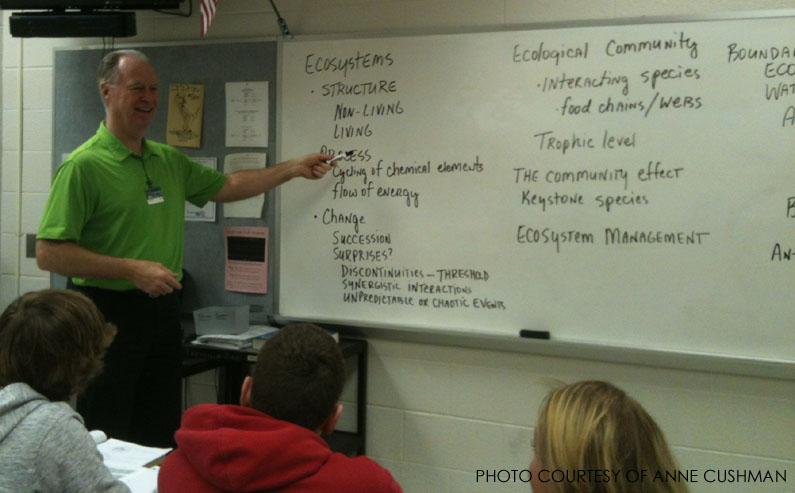 ECOSYSTEMS
• STRUCTURE
NON-LIVING
LIVING
• PROCESS
Cycling of chemical elements
flow of energy
• Change
SUCCESSION
SURPRISES?
DISCONTINUITIES - THRESHOLD
SYNERGISTIC INTERACTIONS
UNPREDICTABLE OR CHAOTIC EVENTS
Ecological Community
• Interacting species
• food chains/webs
Trophic level
THE community effect
Keystone species
ECOSystem MANAGEMENT
PHOTO COURTESY OF ANNE CUSHMAN